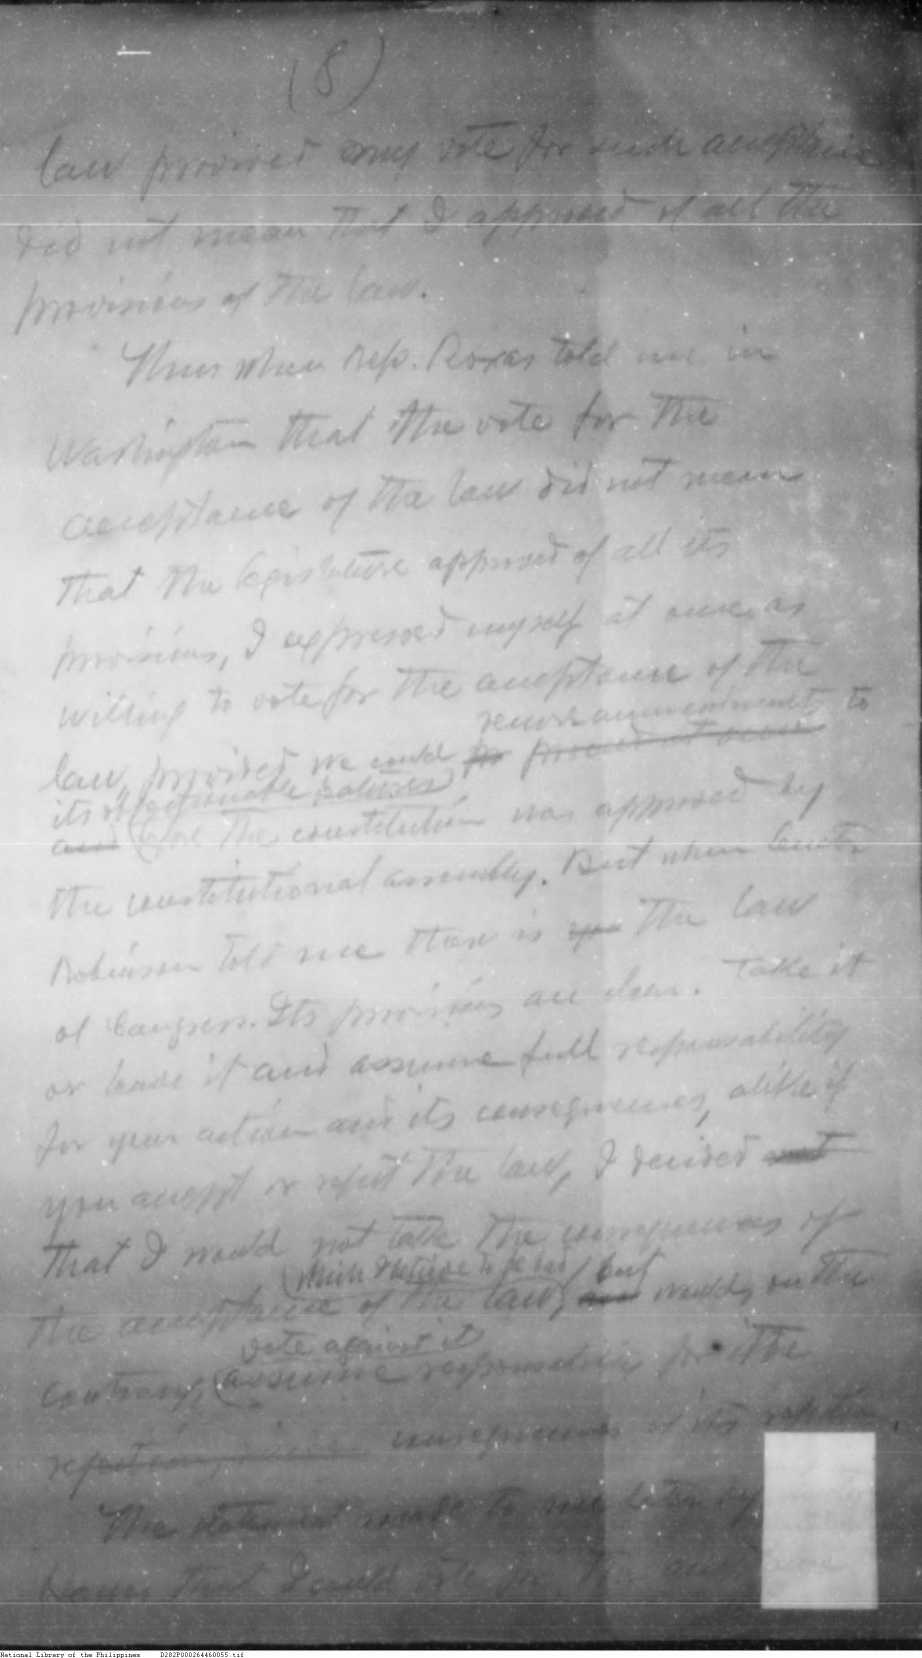 (8)
law provided my vote for such acceptance
did not mean that I approved of all the
provisions of the law.
Then when Rep. Roxas told me in
Washington that the vote for the
acceptance of the law did not mean
that the legislature approved of all its
provisions, I expressed myself at once as
willing to vote for the acceptance of the
secure amendments to
law, provided we could proceed at once
its objectionable features
and before the constitution was approved by
the constitutional assembly. But when
Robinson told me there is the law
of Congress. Its provisions are clear. Take it
or leave it and assume full responsability
for your action and its consequences, alike if
you accept or reject the law, I decided not
that I would not take the consequences of
which
but
the acceptance of the law, and would, on the
vote against it
contrary, assume responsability for the
rejection, consequences of its rejection.
The statement made to me later by
that I could vote for the acceptance